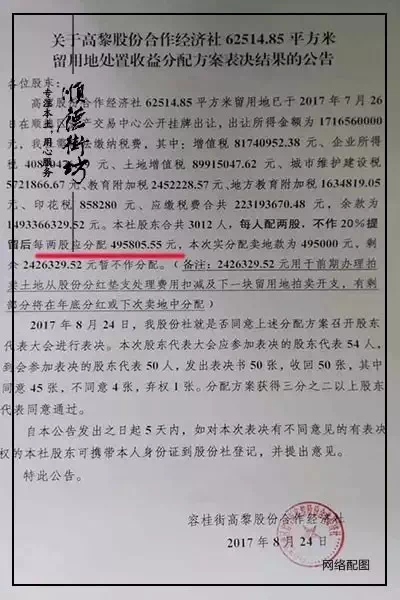 关于高黎股份合作经济社 62514.85 平方米
留用地处置收益分配方案表决结果的公告
各位股东：
高 股份合作经济社 62514.85 平方米留用地已于 2017 年 7 月 26
日在顺 产交易中心公开挂牌出让，出让所得金额为 1716560000
元，我 需 缴纳税费，其中：增值税 81740952.38 元、企业所得
税 元、土地增值税 89915047.62 元、城市维护建设税
5721866.67 元、教育附加税 2452228.57 元、地方教育附加税 1634819.05
元、印花税 858280 元、应缴税费合共 223193670.48 元，余款为
1493366329.52 元。本社股东合共 3012 人，每人配两股，不作 20%提
留后每两股应分配 495805.55 元，本次实分配卖地款为 495000 元，剩
余 2426329.52 元暂不作分配。（备注：2426329.52 元用于前期办理拍
卖土地从股份分红垫支处理费用扣减及下一块留用地拍卖开支，有剩
部分将在年底分红或下次卖地中分配）
2017 年 8 月 24 日，我股份社就是否同意上述分配方案召开股东
代表大会进行表决。本次股东代表大会应参加表决的股东代表 54 人，
到会参加表决的股东代表 50 人，发出表决书 50 张，收回 50 张，其中
同意 45 张，不同意 4 张，弃权 1 张。分配方案获得三分之二以上股东
代表同意通过。
自本公告发出之日起 5 天内，如对本次表决有不同意见的有表决
权的本社股东可携带本人身份证到股份社登记，并提出意见。
特此公告。
容桂街高黎股份合作经济社
2017 年 8 月 24 日
顺德街坊
专注本土，用心服务
网络配图